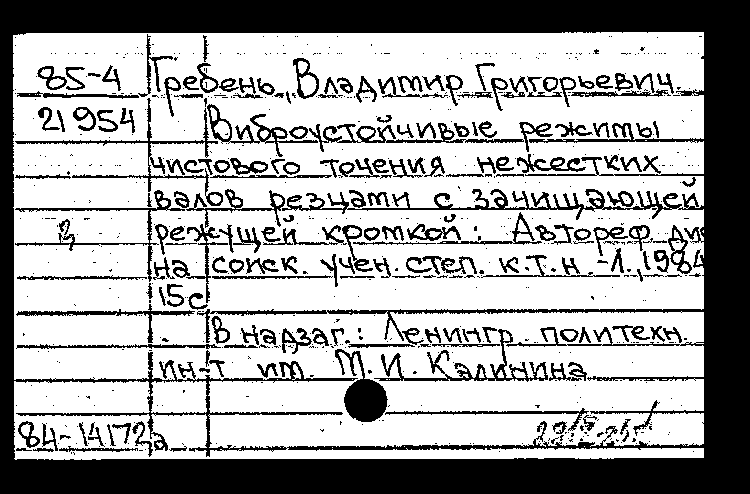 85-4 Гребень, Владимир Григорьевич.
21954 Виброустойчивые режимы
чистового точения нежестких
валов резцами с зачищающей
режущей кромкой: Автореф. ди
на соиск. учен. степ. к.т.н. -Л., 1984
15с
В надзаг.: Ленингр. политехн.
ин-т им. М.И. Калинина
84-14172а